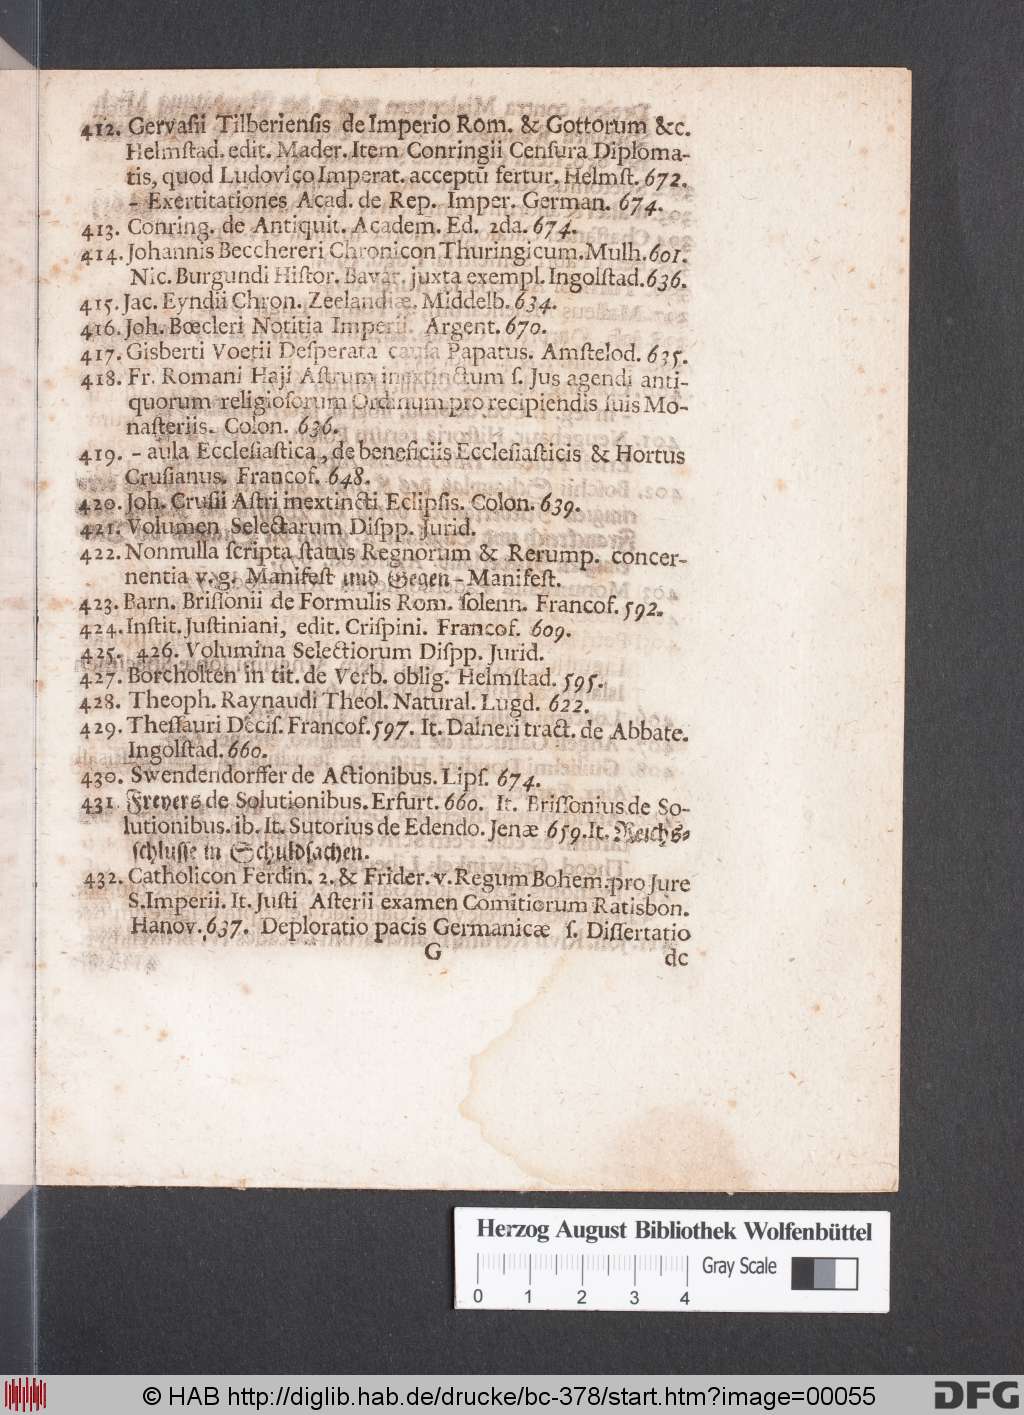 412. Gervaſii Tilberienſis de Imperio Rom. & Gottorum &c.
Helmſtad. edit. Mader. Item Conringii Cenſura Diploma-
tis, quod Ludovico Imperat. acceptū fertur. Helmſt. 672.
- Exertitationes Acad. de Rep. Imper. German. 674.
413. Conring. de Antiquit. Academ. Ed. 2da. 674.
414. Johannis Becchereri Chronicon Thuringicum. Mulh. 601.
Nic. Burgundi Hiſtor. Bavar. juxta exempl. Ingolſtad. 636.
415. Jac. Eyndii Chron. Zeelandiæ. Middelb. 634.
416. Joh. Bœcleri Notitia Imperii. Argent. 670.
417. Gisberti Voetii Deſperata cauſa Papatus. Amſtelod. 635.
418. Fr. Romani Haji Aſtrum inextinctum ſ. Jus agendi anti-
quorum religioſorum Ordinum pro recipiendis ſuis Mo-
naſteriis. Colon. 636.
419. - aula Eccleſiaſtica, de beneficiis Eccleſiaſticis & Hortus
Cruſianus. Francof. 648.
420. Joh. Cruſii Aſtri inextincti Eclipſis. Colon. 639.
421. Volumen Selectarum Diſpp. Jurid.
422. Nonnulla ſcripta ſtatus Regnorum & Rerump. concer-
nentia v. g. Manifeſt und Gegen-Manifeſt.
423. Barn. Briſſonii de Formulis Rom. ſolenn. Francof. 592.
424. Inſtit. Juſtiniani, edit. Criſpini. Francof. 609.
425. 426. Volumina Selectiorum Diſpp. Jurid.
427. Borcholten in tit. de Verb. oblig. Helmſtad. 595.
428. Theoph. Raynaudi Theol. Natural. Lugd. 622.
429. Theſſauri Deciſ. Francof. 597. It. Dalneri tract. de Abbate.
Ingolſtad. 660.
430. Swendendorffer de Actionibus. Lipſ. 674.
431 Freyers de Solutionibus. Erfurt. 660. It. Briſſonius de So-
lutionibus. ib. It. Sutorius de Edendo. Jenæ 659. It. Reichs-
ſchluſſe in Schuldſachen.
432. Catholicon Ferdin. 2. & Frider. v. Regum Bohem. pro Jure
S. Imperii. It. Juſti Aſterii examen Comitiorum Ratisbon.
Hanov. 637. Deploratio pacis Germanicæ ſ. Diſſertatio
G
de
Herzog August Bibliothek Wolfenbüttel
Gray Scale
0 1 2 3 4
© HAB http://diglib.hab.de/drucke/bc-378/start.htm?image=00055
DFG